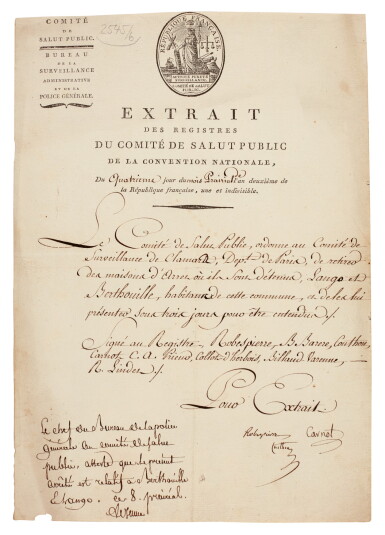 COMITÉ
DE
SALUT PUBLIC.
BUREAU
DE LA
SURVEILLANCE
ADMINISTRATIVE
ET DE LA
POLICE GÉNÉRALE.
RÉPUBLIQUE FRANÇAISE.
EXTRAIT
DES REGISTRES
DU COMITÉ DE SALUT PUBLIC
DE LA CONVENTION NATIONALE,
Du Quatrieme jour du mois Prairial an deuxième de
la République française, une et indivisible.
Le Comité de Salut Public, ordonne au Comité de
Surveillance de Clamart, Dépt. de Paris, de retirer
des maisons d'arrêt où ils sont détenus, Lango et
Berthouille, habitans de cette commune, et de les lui
présenter sous trois jours pour être entendus /.
Signé au Registre, Robespierre, B. Barere, Couthon,
Carnot, C. A. Prieur, Collot d'herbois, Billaud Varenne,
R. Lindet /.
Pour Extrait.
Robespierre Carnot
Couthon
Le chef du Bureau de la police
générale du comité de salut
public, atteste que le présent
arrêté est relatif à Berthouille
et Lango. ce 8. prairial.
Lejeune